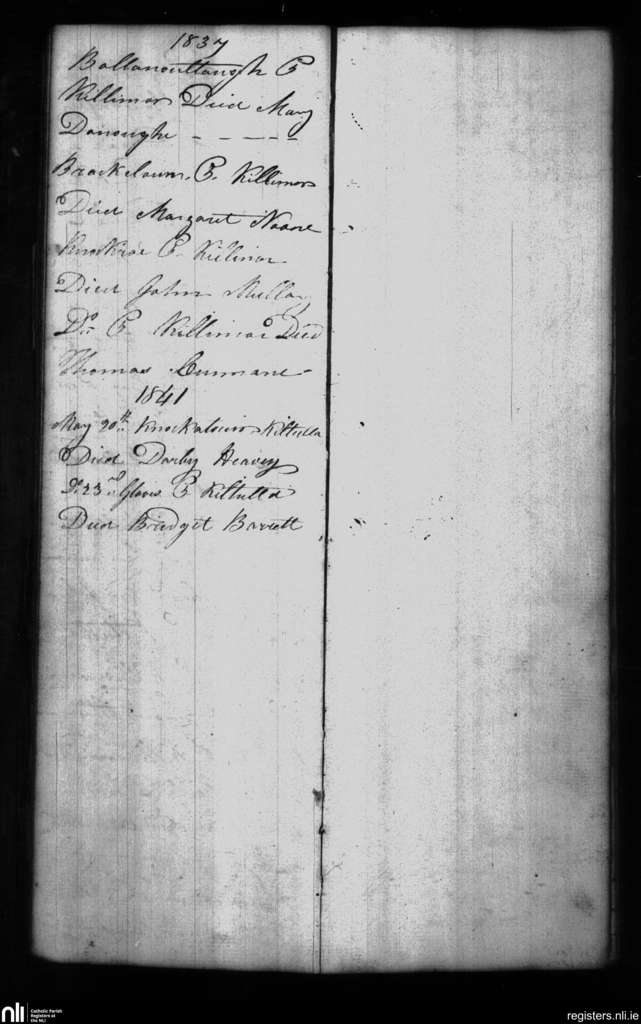 1837
Ballanouttaugh P
Killimor Died Mary
Donoughe - - - - -
Brackloun. P. Killimor
Died Margaret Noone
Knockroe P. Killimor
Died John Mullay
Do. P Killimor Died
Thomas Cunnane -
1841
May 20th Knockaloun Kiltulla
Died Darby Heavey
Do. 23rd Gloves P Kiltulla
Died Bridget Barrett
nli
Catholic Parish
Registers at
the NLI
registers.nli.ie